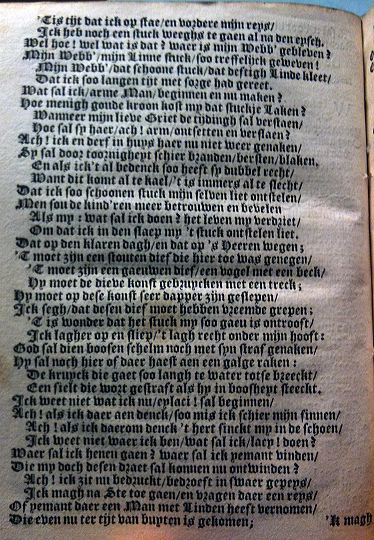 'Tis tijt dat ick op stae/en vordere mijn reys/
Ick heb noch een stuck weeghs te gaen al na den eysch.
Wel hoe! wel wat is dat? waer is mijn Webb' gebleven?
Mijn Webb'/mijn Linne stuck/soo treffelijck geweven!
Mijn Webb'/dat schoone stuck/dat deftigh Linde kleet/
Dat ick soo langen tijt met sorge had gereet.
Wat sal ick/arme Man/beginnen en nu maken?
Hoe menigh goude kroon kost my dat stuckje Laken?
Wanneer mijn lieve Griet de tijdingh sal verstaen/
Hoe sal sy haer/ach! arm/ontsetten en verslaen?
Ach! ick en derf in huys haer nu niet weer genaken/
Sy sal door toornigheyt schier branden/bersten/blaken.
En als ick't al bedenck soo heeft sy dubbel recht/
Want dit komt al te kael/'t is immers al te slecht/
Dat ick soo schoonen stuck mijn selven liet ontstelen/
Men sou de kind'ren niet betrouwen en bevelen
Als my: wat sal ick doen? het leven my verdriet/
Om dat ick in den slaep my 't stuck ontstelen liet.
Dat op den klaren dagh/en dat op 's Heeren wegen;
'T moet zijn een stouten dief die hier toe was genegen/
'T moet zijn een gaeuwen dief/een vogel met een beck/
Hy moet de dieve konst gebruycken met een treck;
Hy moet op dese konst seer dapper zijn geslepen/
Ick segh/dat desen dief moet hebben vreemde grepen;
'T is wonder dat het stuck my soo gaeu is ontrooft/
Ick lagher op en sliep/'t lagh recht onder mijn hooft:
God sal dien boosen schelm noch met sijn straf genaken/
Hy sal noch hier of daer haest aen een galge raken:
De kruyck die gaet soo langh te water totse breeckt/
Een sielt die wort gestraft als hy in boosheyt steeckt.
Ick weet niet wat ick nu/eylaci! sal beginnen/
Ach! als ick daer aen denck/soo mis ick schier mijn sinnen/
Ach! als ick daerom denck 't hert sinckt my in de schoen/
Ick weet niet waer ick ben/wat sal ick/lacy! doen?
Waer sal ick henen gaen? waer sal ick yemant vinden/
Die my doch desen draet sal konnen nu ontwinden?
Ach! ick zit nu bedruckt/bedroeft in swaer gepeys/
Ick magh na Ste toe gaen/en vragen daer een reys/
Of yemant daer een Man met Linden heeft vernomen/
Die even nu ter tijt van buyten is gekomen;
'k magh